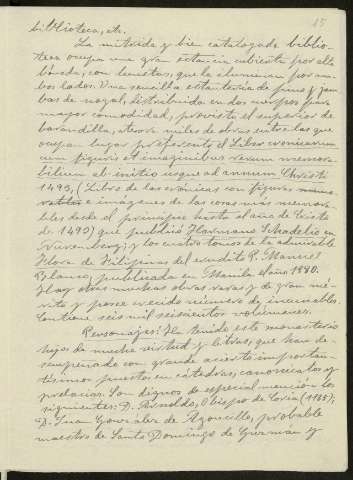 15
biblioteca, etc.
La nutrida y bien catalogada biblio-
teca ocupa una gran estancia cubierta por alta
bóveda, con lunetos, que la iluminan por am-
bos lados. Una sencilla estantería de pino y jam-
bas de nogal, distribuida en dos cuerpos para
mayor comodidad, provisto el superior de
barandilla, atesora miles de obras entre las que
ocupan lugar preferente el Liber cronicarum
cum figuris et imaginibus rerum memora-
bilium ab initio usque ad annum Christi
1493, (Libro de las crónicas con figuras
e imágenes de las cosas más memora-
bles desde el principio hasta el año de Cristo
de 1493) que publicó Harmano Schadelio en
Nuremberg; y los cuatro tomos de la admirable
Flora de Filipinas del erudito P. Manuel
Blanco, publicada en Manila el año 1880.
Hay otras muchas obras raras y de gran mé-
rito y posee crecido número de incunables.
Contiene seis mil seiscientos volúmenes.
Personajes: Ha tenido este monasterio
hijos de mucha virtud y letras, que han de-
sempeñado con grande acierto importan-
tísimos puestos en cátedras, canonicatos y
prelacías. Son dignos de especial mención los
siguientes: D. Arnaldo, Obispo de Coria (1185);
D. Juan González de Azoncillo, probable
maestro de Santo Domingo de Guzmán y